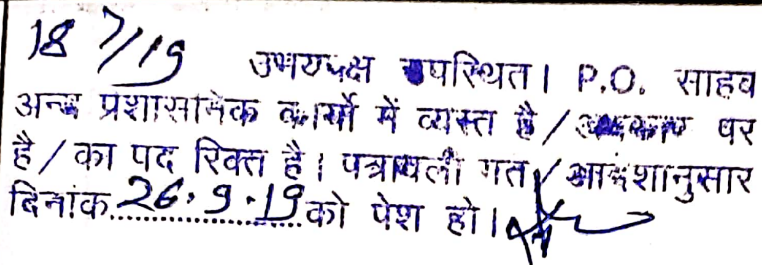 18/7/19 उभयपक्ष उपस्थित। P.O. साहब
अन्य प्रशासनिक कार्यो में व्यस्त है / अवकाश पर
है / का पद रिक्त है। पत्रावली गत / आदेशानुसार
दिनांक 26.9.19 को पेश हो।